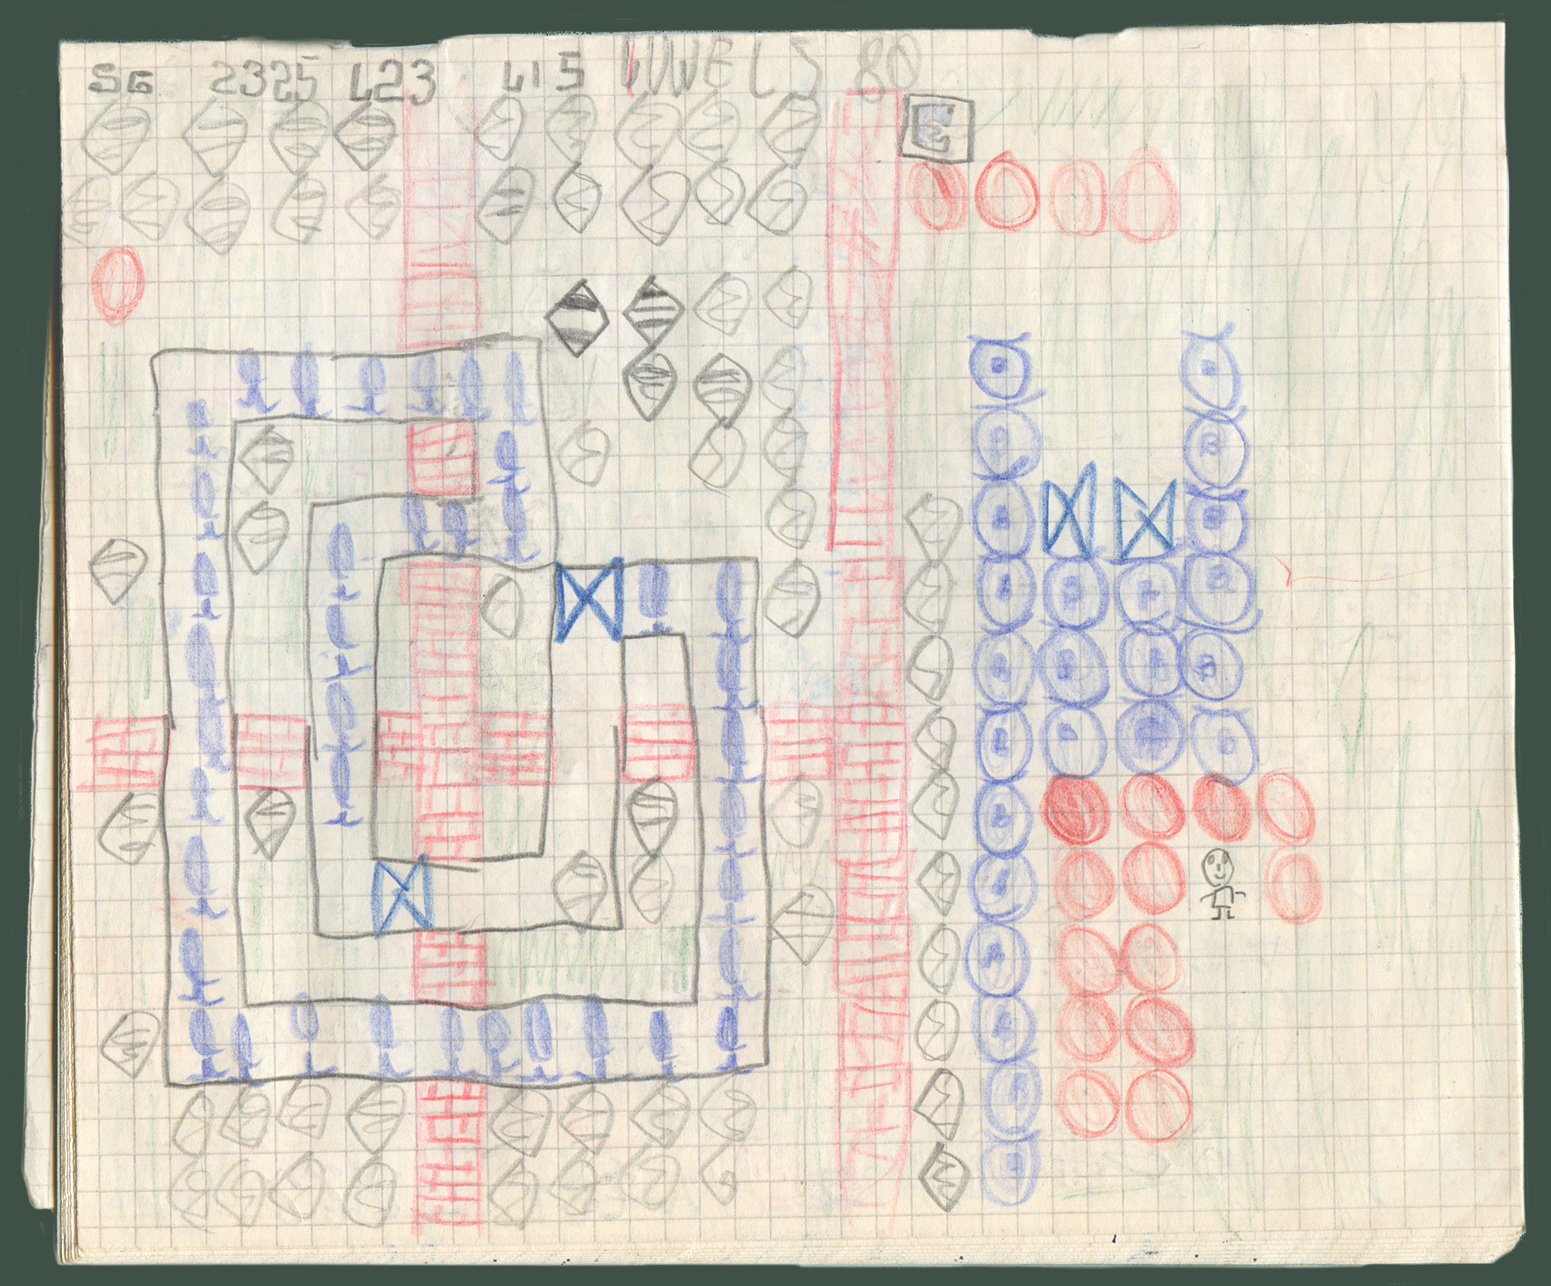 SG 2325 L23 L15 JUWELS 80
E